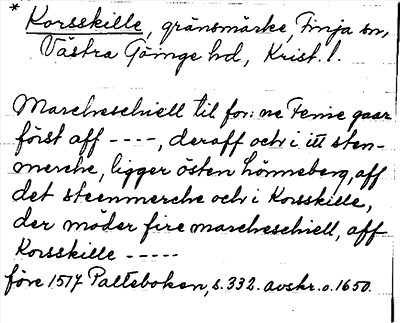 * Korsskille, gränsmärke, Finja sn,
Västra Göinge hd, Krist. l.
Marcheschiell til for:ne Fenie gaar
först aff ----, deraff och i itt sten-
merche, ligger östen Lönneberg, aff
det steenmerche och i Korsskille,
der möder fire marcheschiell, aff
Korsskille -----
före 1517 Palteboken, s. 332. avskr. o. 1650.